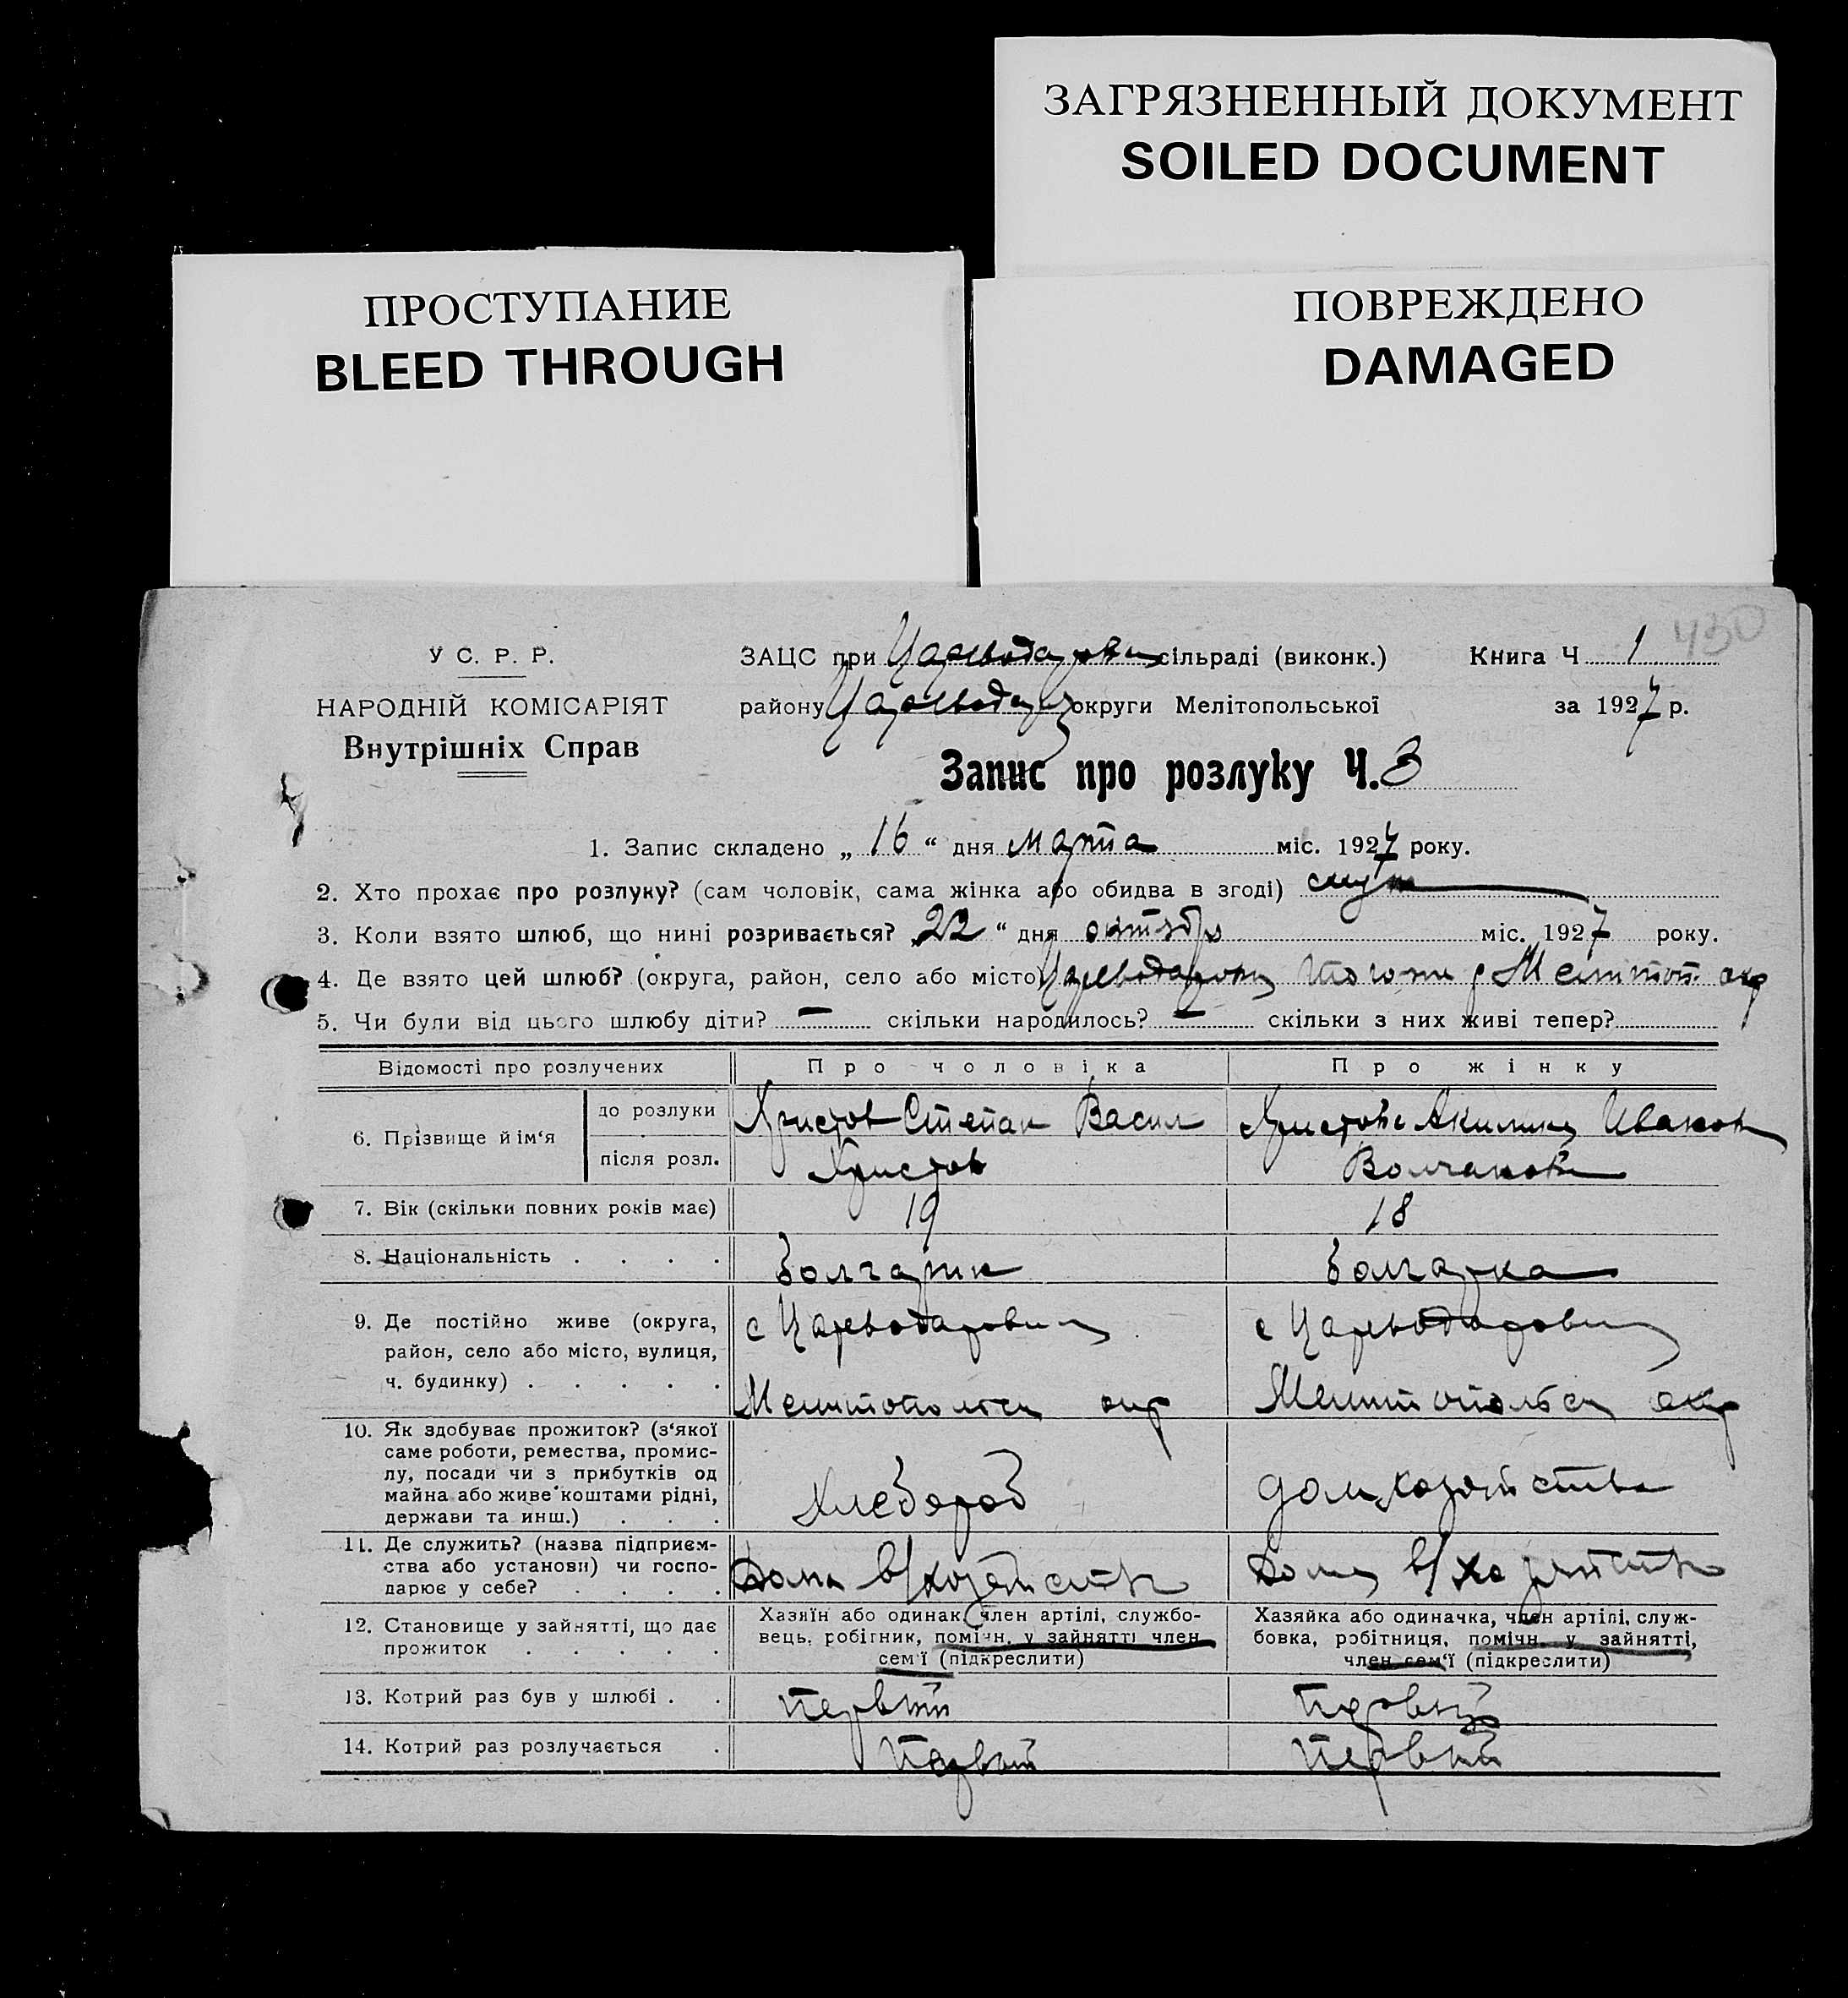 ЗАГРЯЗНЕННЫЙ ДОКУМЕНТ
SOILED DOCUMENT
ПРОСТУПАНИЕ
BLEED THROUGH
ПОВРЕЖДЕНО
DAMAGED
430
У С. Р. Р.
НАРОДНІЙ КОМІСАРІЯТ
Внутрішніх Справ
ЗАЦС при сільраді (виконк.) Книга Ч 1
району округи Мелітопольської за 1927 р.
Запис про розлуку Ч. 3
1. Запис складено „ 16 “ дня марта міс. 1927 року.
2. Хто прохає про розлуку? (сам чоловік, сама жінка або обидва в згоді)
3. Коли взято шлюб, що нині розривається? „22 “ дня октябр міс. 1927 року.
4. Де взято цей шлюб? (округа, район, село або місто) Мелитоп. окр
5. Чи були від цього шлюбу діти? — скільки народилось? — скільки з них живі тепер?
Відомості про розлучених
Про чоловіка
Про жінку
6. Прізвище й ім‘я
до розлуки
Христов Степан Васил
Христова Акилина Иванов
після розл.
Христов
Волчанова
7. Вік (скільки повних років має)
19
18
8. Національність . . . .
болгарин
болгарка
9. Де постійно живе (округа,
район, село або місто, вулиця,
ч. будинку) . . . . .
с Цареводаровки
Мелитопольск окр
с Цареводаровки
Мелитопольск окр
10. Як здобуває прожиток? (з‘якої
саме роботи, ремества, промис-
лу, посади чи з прибутків од
майна або живе коштами рідні,
держави та инш.) . . .
Хлебороб
домхозяйства
11. Де служить? (назва підприєм-
ства або установи) чи госпо-
дарює у себе? . . . .
Дома в/хозяйстве
Дома в/хозяйстве
12. Становище у зайнятті, що дає
прожиток . . . . .
Хазяїн або одинак, член артілі, службо-
вець, робітник, помічн. у зайнятті член
сем'ї (підкреслити)
Хазяйка або одиначка, член артілі, служ-
бовка, робітниця, помічн. у зайнятті,
член сем‘ї (підкреслити)
13. Котрий раз був у шлюбі . .
первый
14. Котрий раз розлучається .
первый
первый